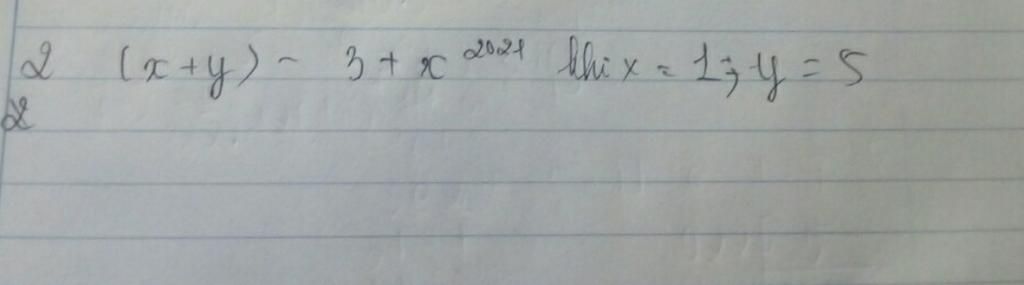 2 (x+y) - 3 + x^2021 khi x = 1; y = 5